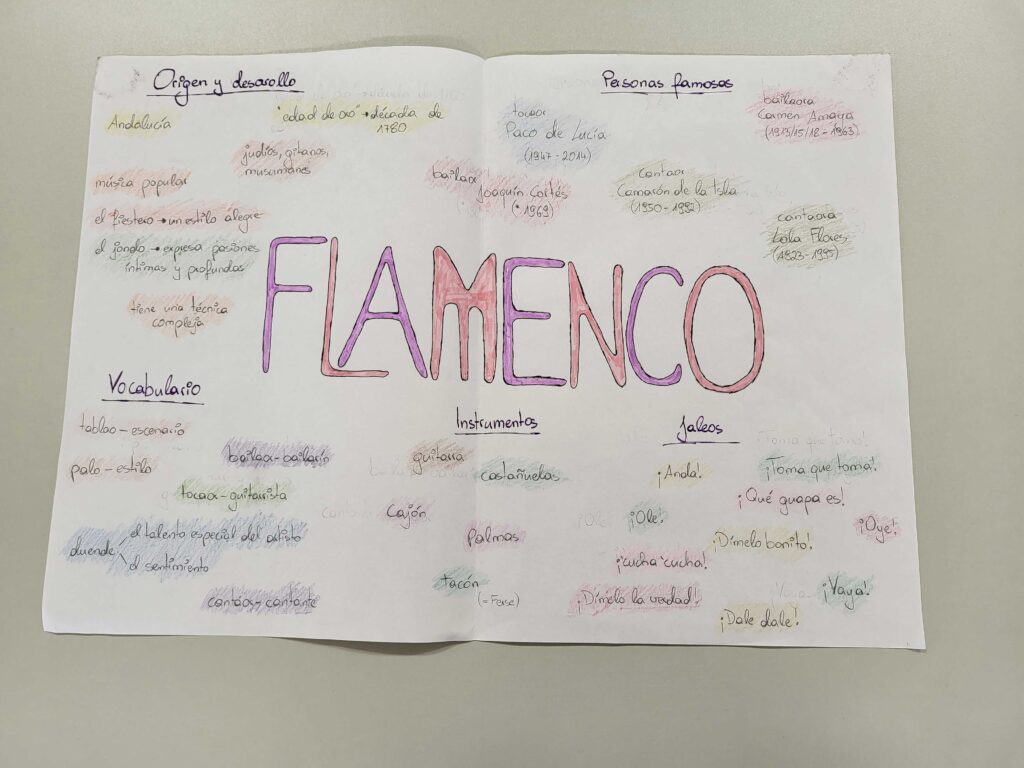 Origen y desarollo
Andalucía
"edad de oro" → década de
1780
judíos, gitanos,
musulmanes
música popular
el fiestero → un estilo alegre
el jondo → expresa pasiones
íntimas y profundas
tiene una técnica
compleja
Personas famosas
tocaor
Paco de Lucía
(1947-2014)
bailaora
Carmen Amaya
(1913/15/18-1963)
bailaor
Joaquín Cortés
(*1969)
cantaor
Camarón de la Isla
(1950-1992)
cantaora
Lola Flores
(1923-1995)
FLAMENCO
Vocabulario
tablao - escenario
palo - estilo
bailaor - bailarín
tocaor - guitarrista
duende
el talento especial del artista
el sentimiento
cantaor - cantante
Instrumentos
guitarra
castañuelas
Cajón
palmas
tacón
(= Ferse)
Jaleos
¡Anda!
¡Toma que toma!
¡Qué guapa es!
¡Ole!
¡Oye!
¡Dímelo bonito!
¡'cucha 'cucha!
¡Dímelo la verdad!
¡Vaya!
¡Dale dale!